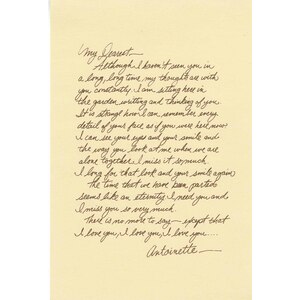 My Dearest—
Although I haven't seen you in
a long, long time, my thoughts are with
you constantly. I am sitting here in
the garden, writing and thinking of you.
It is strange how I can remember every
detail of your face, as if you were here now.
I can see your eyes and your smile and
the way you look at me when we are
alone together. I miss it so much.
I long for that look and your smile again.
The time that we have been parted
seems like an eternity. I need you and
I miss you so very much.
There is no more to say—except that
I love you, I love you, I love you....
Antoinette—